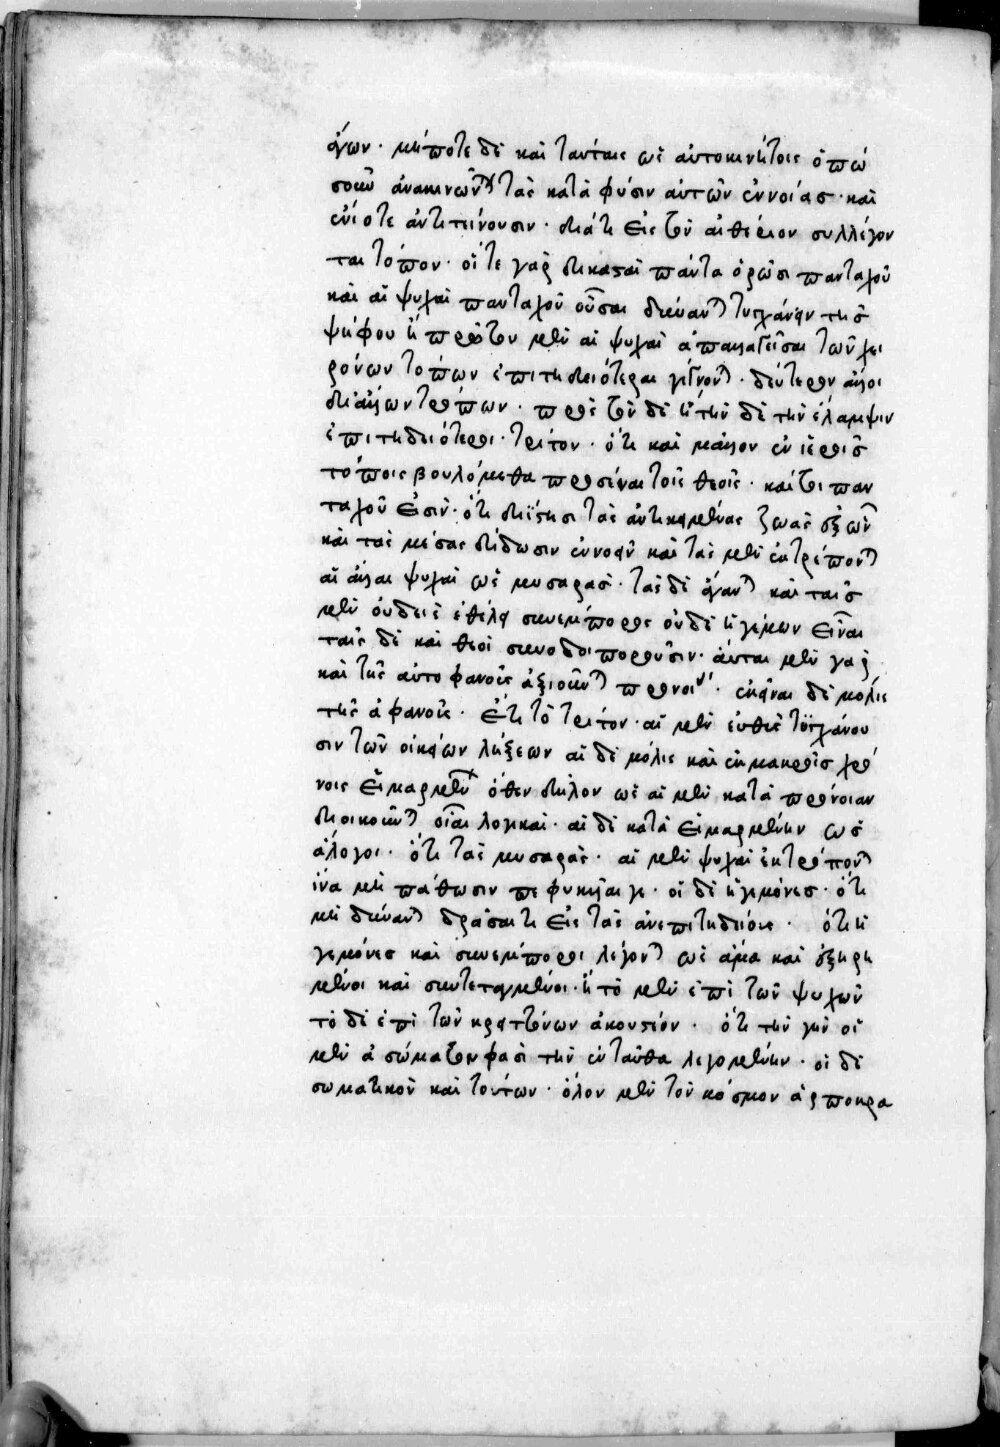 ἄγων · μήποτε δὲ καὶ ταύταις ὡς αὐτοκινήτοις ὁπω
σοῦν ἀνακινῶνται τὰς κατὰ φύσιν αὐτῶν ἐννοίας · καὶ
ἐνίοτε ἀντιτείνουσιν · διάτι εἰς τὸν αἰθέριον συλλέγον
ται τόπον · οἵ τε γὰρ δικασταὶ πάντα ὁρῶσι πανταχοῦ
καὶ αἱ ψυχαὶ πανταχοῦ οὖσαι δύνανται τυγχάνειν τῆς
ψήφου ἢ πρῶτον μὲν αἱ ψυχαὶ ἀπαλλαγεῖσαι τῶν χει
ρόνων τόπων ἐπιτηδειότεραι γίγνονται · δεύτερον ἄλλοι
δι' ἄλλων τρόπων · πρὸς τὸν δὲ ἢ τὴν δὲ τὴν ἔλαμψιν
ἐπιτηδειότεροι · τρίτον · ὅτι καὶ μᾶλλον ἐν ἱεροῖς
τόποις βουλόμεθα προσιέναι τοῖς θεοῖς · καίτοι παν
ταχοῦ εἰσίν · ὅτι διΐστησι τὰς ἀντικειμένας ζωὰς
καὶ τὰς μέσας δίδωσιν ἐννοεῖν καὶ τὰς μὲν ἐκτρέπονται
αἱ ἄλλαι ψυχαὶ ὡς μυσαρὰς · τὰς δὲ ἄγανται καὶ ταῖς
μὲν οὐδεὶς ἐθέλει συνέμπορος οὐδὲ ἡγεμὼν εἶναι
ταῖς δὲ καὶ θεοὶ συνοδοιποροῦσιν · αὗται μὲν γὰρ
καὶ τῆς αὐτοφανοῦς ἀξιοῦνται προνοίας · ἐκεῖναι δὲ μόλις
τῆς ἀφανοῦς · ἔτι τὸ τρίτον · αἱ μὲν εὐθὺς τυγχάνου
σιν τῶν οἰκείων λήξεων αἱ δὲ μόλις καὶ ἐν μακροῖς χρό
νοις εἱμαρμένην ὅθεν δῆλον ὡς αἱ μὲν κατὰ πρόνοιαν
διοικοῦνται οἷαι λογικαὶ · αἱ δὲ κατὰ εἱμαρμένην ὡς
ἄλογοι · ὅτι τὰς μυσαρὰς · αἱ μὲν ψυχαὶ ἐκτρέπονται
ἵνα μὴ πάθωσιν πεφυκυῖαί γε · οἱ δὲ ἡγεμόνες · ὅτι
μὴ δύνανται δρᾶσαί τι εἰς τὰς ἀνεπιτηδείους · ὅτι ἡ
γεμόνες καὶ συνέμποροι λέγονται ὡς ἅμα καὶ ἐξῃρη
μένοι καὶ συντεταγμένοι · ἢ τὸ μὲν ἐπὶ τῶν ψυχῶν
τὸ δὲ ἐπὶ τῶν κρειττόνων ἀκουστέον · ὅτι τὴν γῆν οἱ
μὲν ἀσώματόν φασι τὴν ἐνταῦθα λεγομένην · οἱ δὲ
σωματικὸν καὶ τούτων · ὅλον μὲν τὸν κόσμον ἁρποκρα